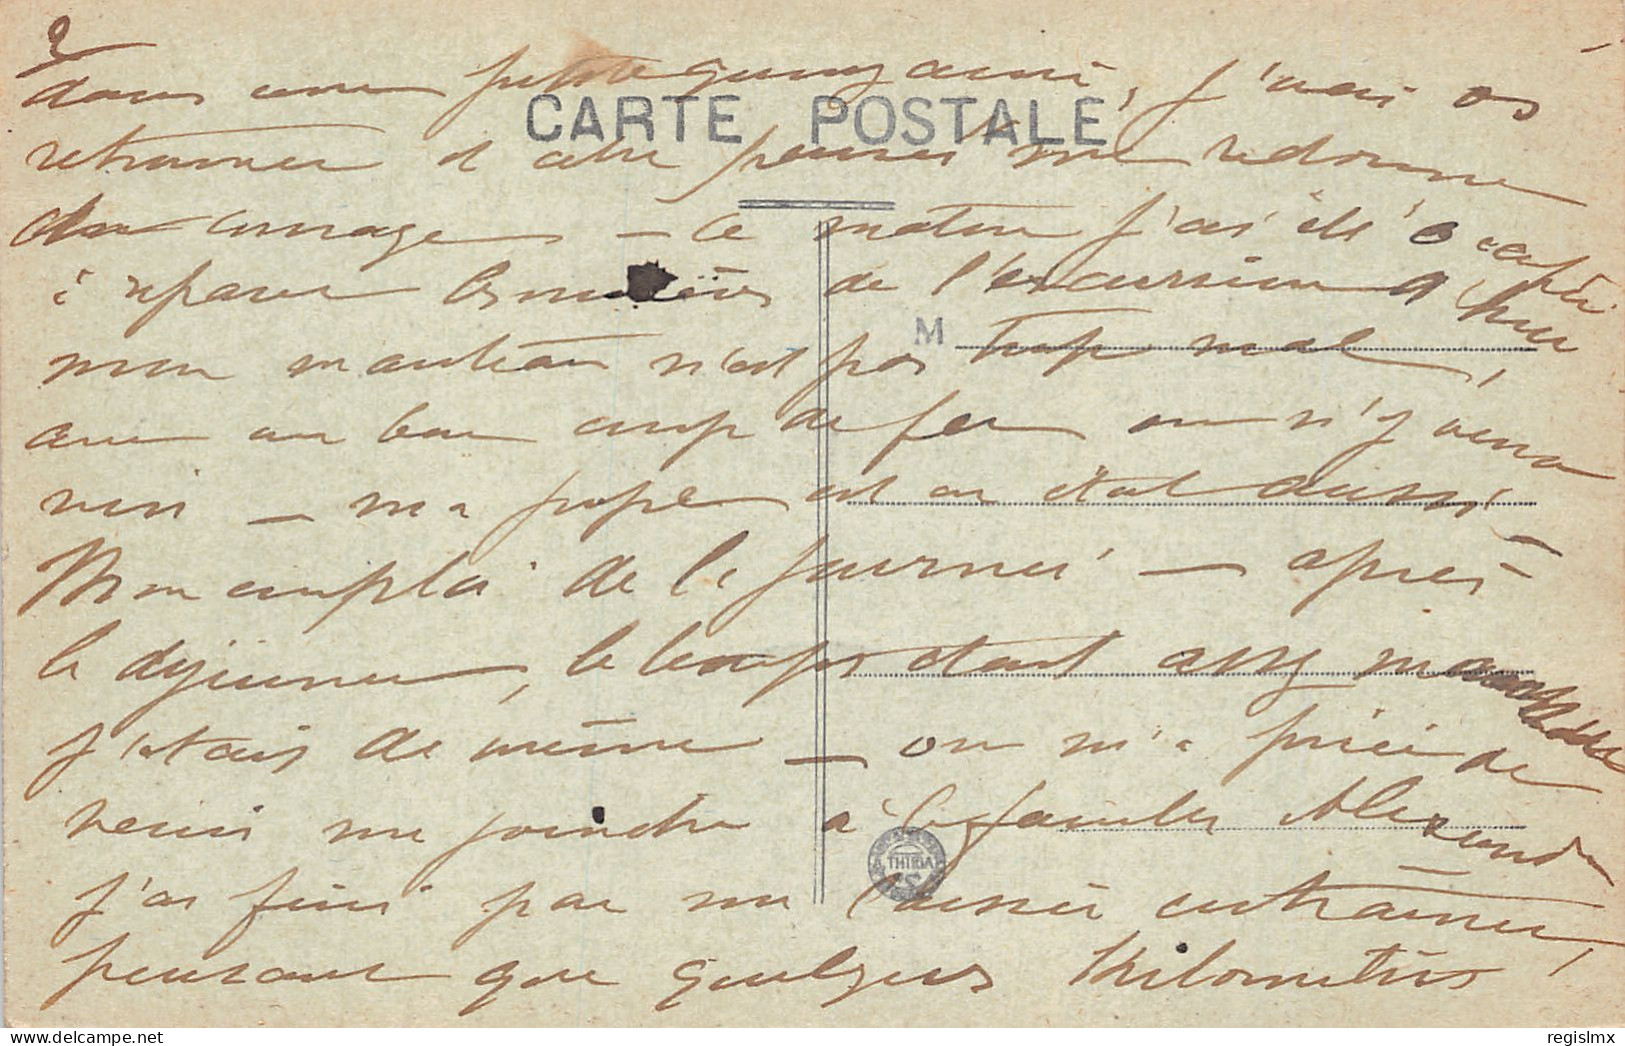 2
dans une petite quinzaine, j'vais vs
CARTE POSTALE
retrouver et cette pensée me redonne
du courage — Ce matin j'ai été occupée
à réparer les misères de l'excursion d'hier
M
mon manteau n'est pas trop mal,
avec un bon coup de fer on n'y verra
rien — ma jupe est en état aussi —
Mon emploi de la journée — après
le déjeuner, le temps étant assez maussade
j'étais de même — on m'a priée de
venir me joindre à la famille Alexandre
THIRIAT
j'ai fini par me laisser entraîner,
pensant que quelques kilomètres
regislmx